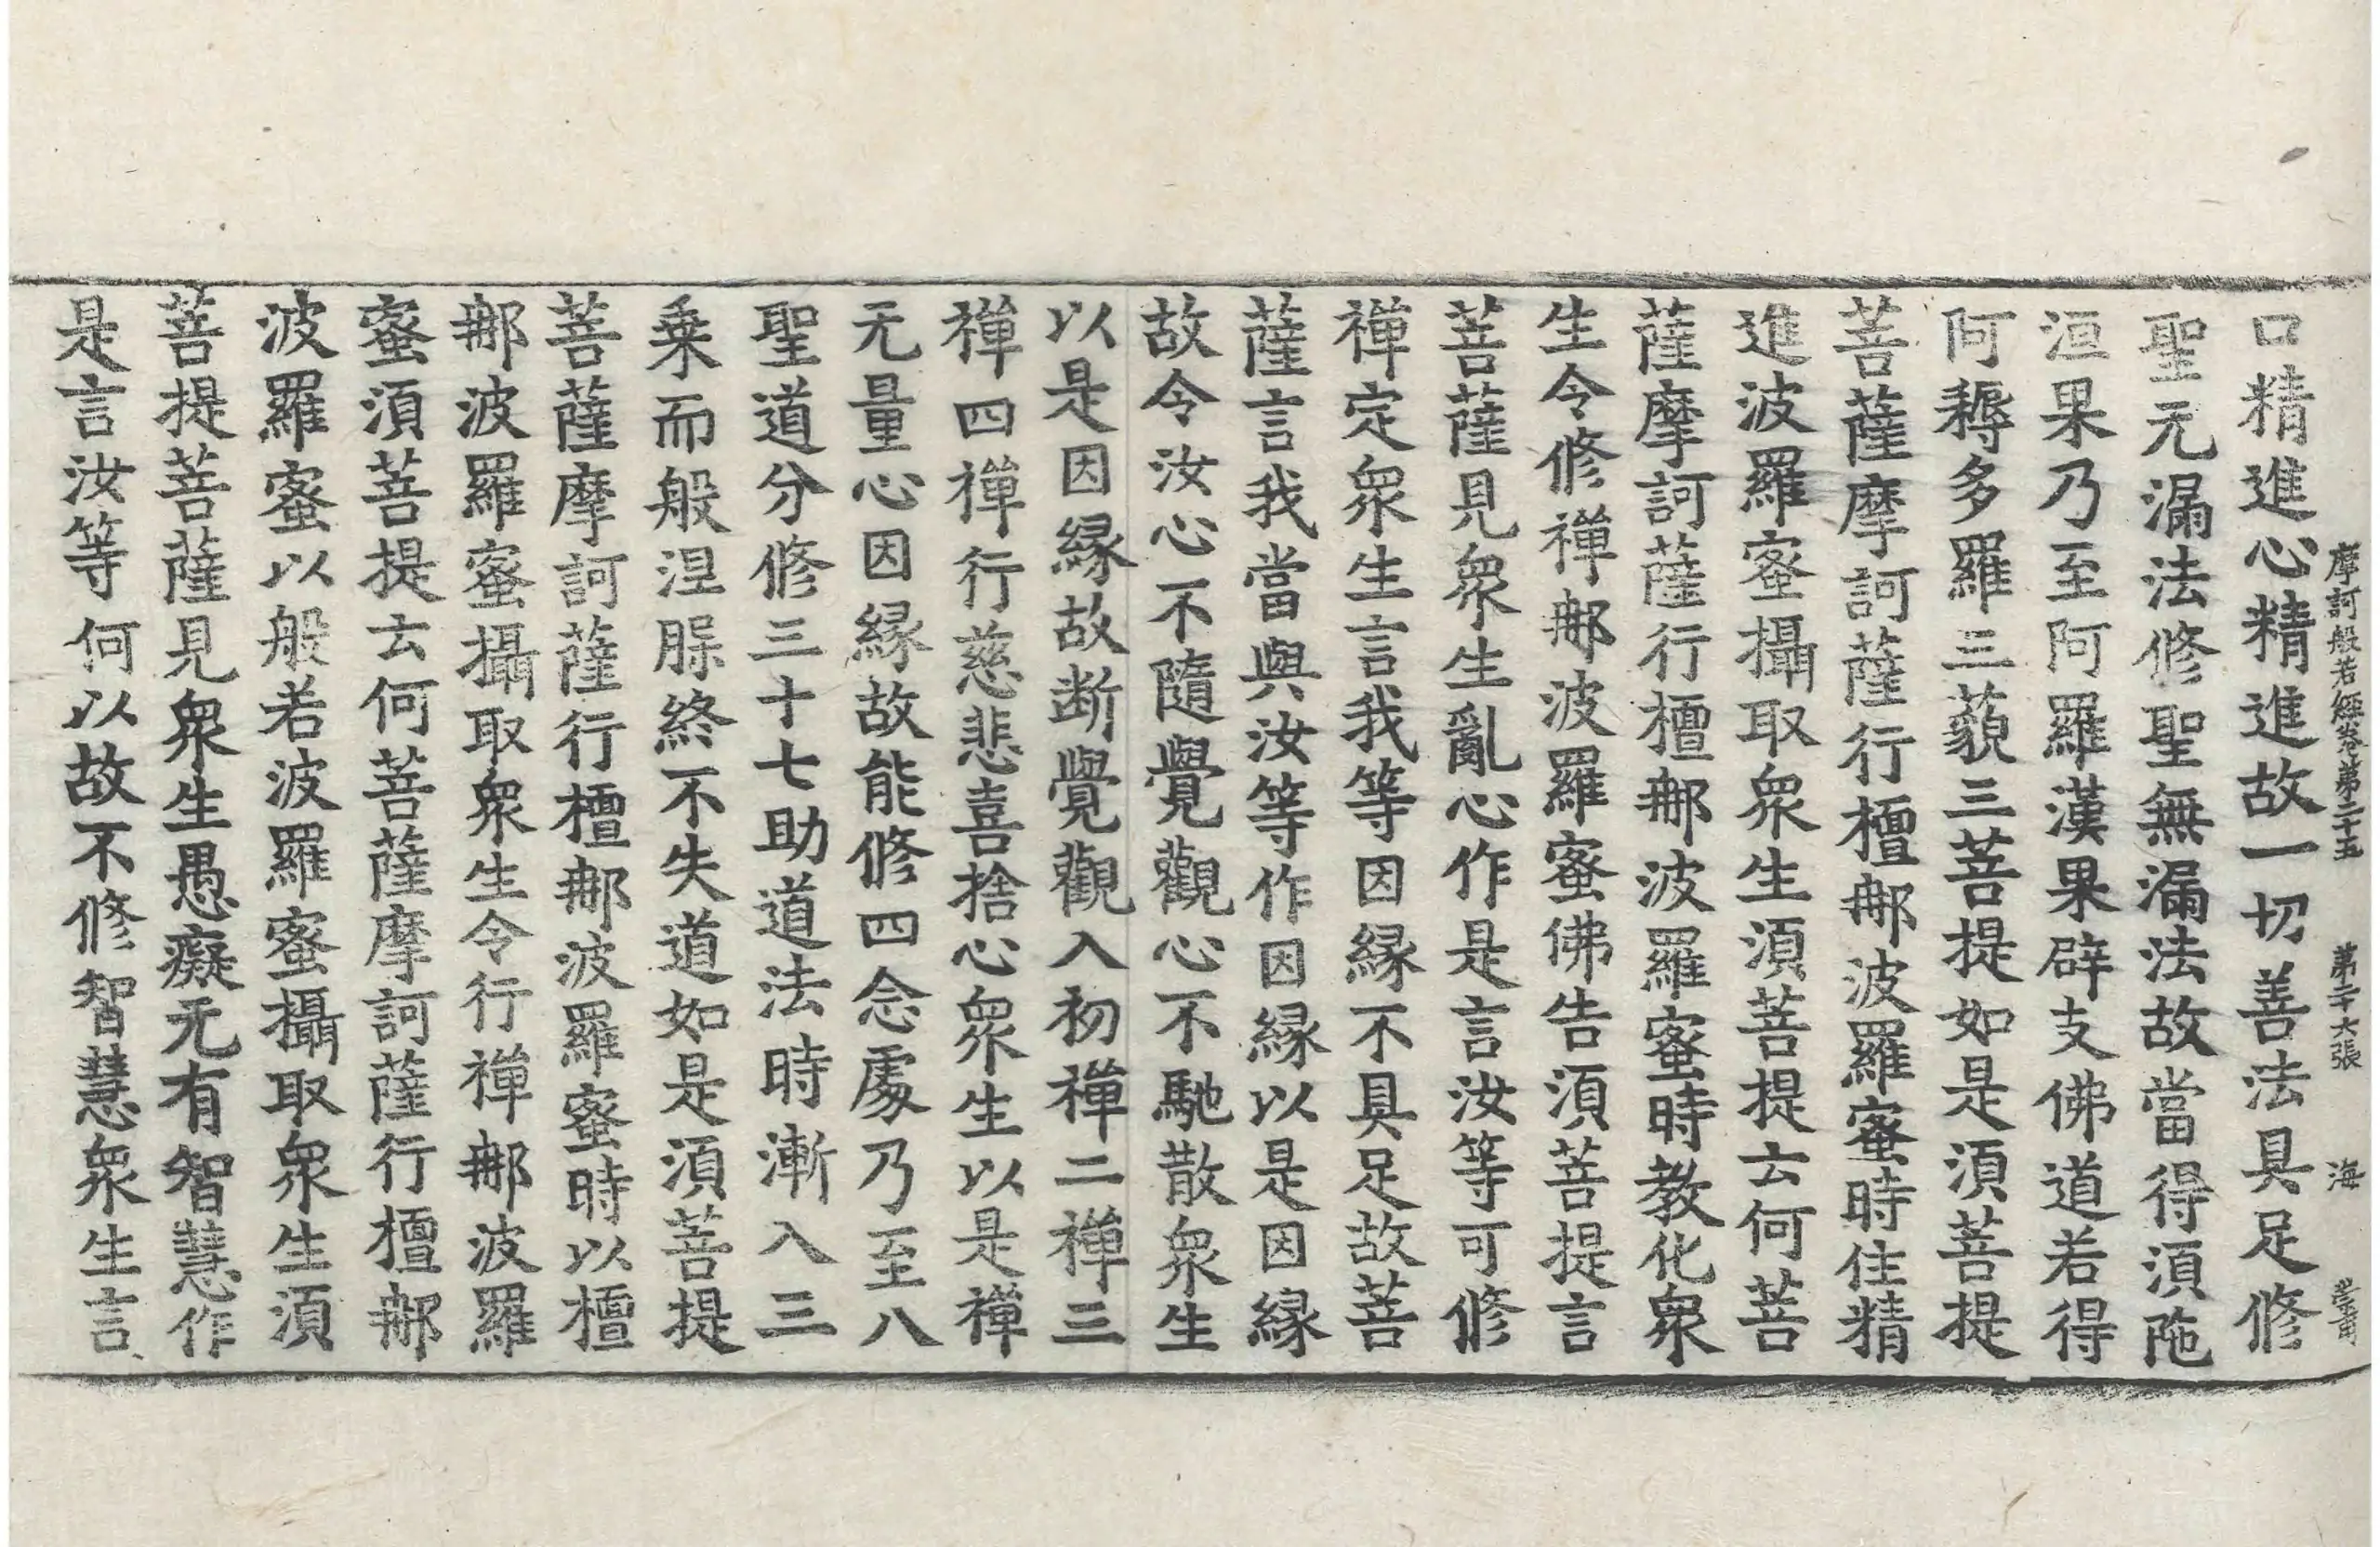 摩訶般若經卷第二十五 第二十六張 海
口精進心精進故一切善法具足修
聖无漏法修聖無漏法故當得湏陁
洹果乃至阿羅漢果辟支佛道若得
阿耨多羅三藐三菩提如是湏菩提
菩薩摩訶薩行檀那波羅蜜時住精
進波羅蜜攝取衆生湏菩提云何菩
薩摩訶薩行檀那波羅蜜時教化衆
生令修禪那波羅蜜佛告湏菩提言
菩薩見衆生亂心作是言汝等可修
禪定衆生言我等因緣不具足故菩
薩言我當與汝等作因緣以是因緣
故令汝心不隨覺觀心不馳散衆生
以是因緣故断覺觀入初禪二禪三
禪四禪行慈悲喜捨心衆生以是禪
无量心因緣故能修四念處乃至八
聖道分修三十七助道法時漸入三
乗而般涅槃終不失道如是湏菩提
菩薩摩訶薩行檀那波羅蜜時以檀
那波羅蜜攝取衆生令行禪那波羅
蜜湏菩提云何菩薩摩訶薩行檀那
波羅蜜以般若波羅蜜攝取衆生湏
菩提菩薩見衆生愚癡无有智慧作
是言汝等何以故不修智慧衆生言